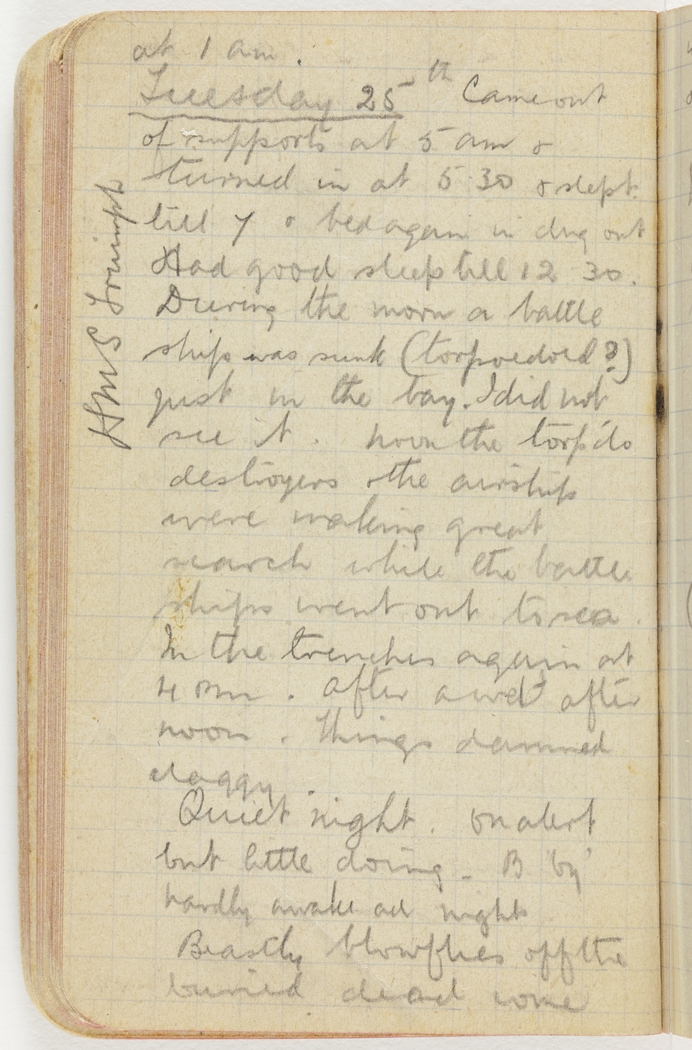 at 1 am.
Tuesday 25th Came out
of supports at 5 am &
turned in at 5 30 & slept
till 7 & bed again in dug out
Had good sleep till 12 30.
During the morn a battle
ship was sunk (torpoedoed?)
just in the bay. I did not
see it. noon the torpdo
destroyers & the airship
were making great
search while the battle
ships went out to sea.
In the trenches again at
4 pm. after a wet after
noon. Things damned
claggy.
Quiet night. on alert
but little doing. B 'by'
hardly awake all night
Beastly blowflies off the
buried dead come
HMS Triumph